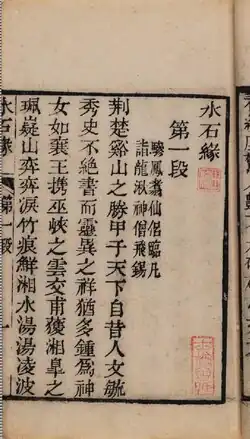 水石緣
第一段
驂鳳翥仙侶臨凡
詣龍湫神僧飛錫
荆楚谿山之勝甲子天下自昔人文毓
秀史不絕書而靈異之祥猶多鍾爲神
女如襄王携巫峽之雲交甫獲湘皐之
珮嶷山奕奕淚竹痕鮮湘水湯湯凌波
水石緣
第一段
一